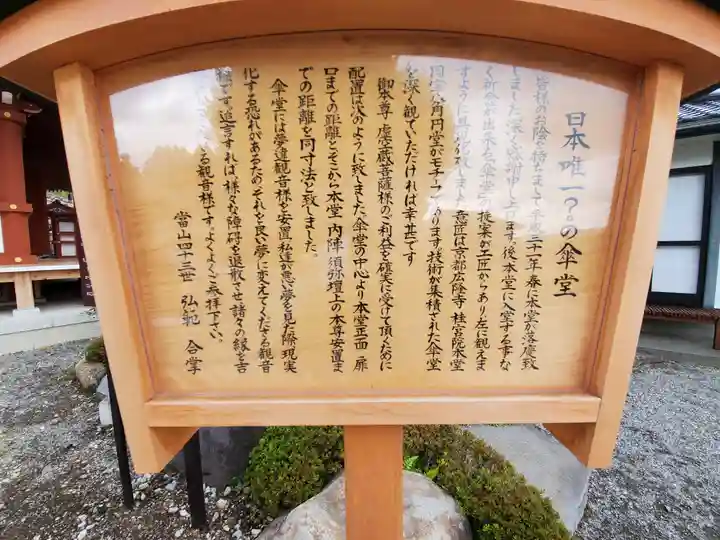 日本唯一?の傘堂
皆様のお陰を持ちまして平成三十一年春に本堂が落慶致
しました。深く感謝申し上げます。後、本堂に入堂する事な
く祈念が出来る傘堂の提案が工匠からあり左に観えま
すように具現化致しました。意匠は京都広隆寺 桂宮院本堂
同宝 八角円堂がモチーフになります。技術が集積された傘堂
を深く観ていただければ幸甚です
御本尊 虚空蔵菩薩様のご利益を確実に受けて頂くために
配置は次のように致しました。傘堂の中心より本堂正面 扉
口までの距離とそこから本堂 内陣 須弥壇上の本尊安置ま
での距離を同寸法と致しました。
傘堂には夢違観音様を安置 私達が悪い夢を見た際現実
化する恐れがあるため それを良い夢に変えてくださる観音
様です。追言すれば 様々な障碍を退散させ 諸々の縁を吉
る観音様です。よくよくご参拝下さい。
當山四十三世 弘範 合掌